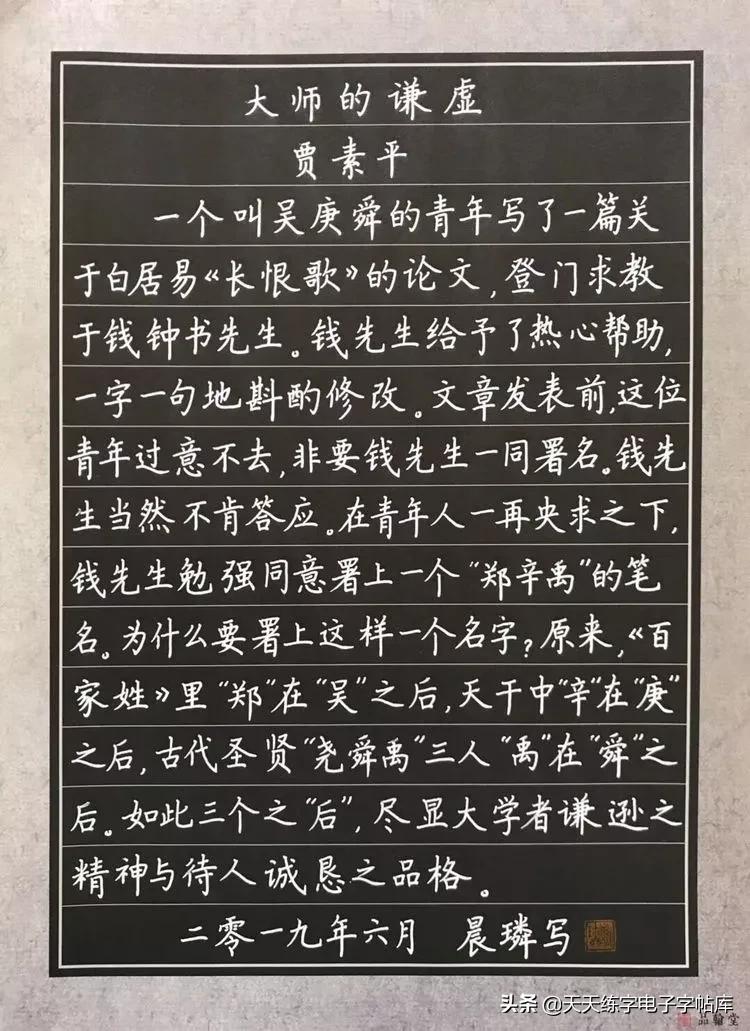 大师的谦虚
贾素平
一个叫吴庚舜的青年写了一篇关
于白居易《长恨歌》的论文,登门求教
于钱钟书先生。钱先生给予了热心帮助,
一字一句地斟酌修改。文章发表前,这位
青年过意不去,非要钱先生一同署名。钱先
生当然不肯答应。在青年人一再央求之下,
钱先生勉强同意署上一个“郑辛禹”的笔
名。为什么要署上这样一个名字?原来,《百
家姓》里“郑”在“吴”之后,天干中“辛”在“庚”
之后,古代圣贤“尧舜禹”三人“禹”在“舜”之
后。如此三个之“后”,尽显大学者谦逊之
精神与待人诚恳之品格。
二零一九年六月 晨璘写
头条 @天天练字电子字帖库
品翰堂